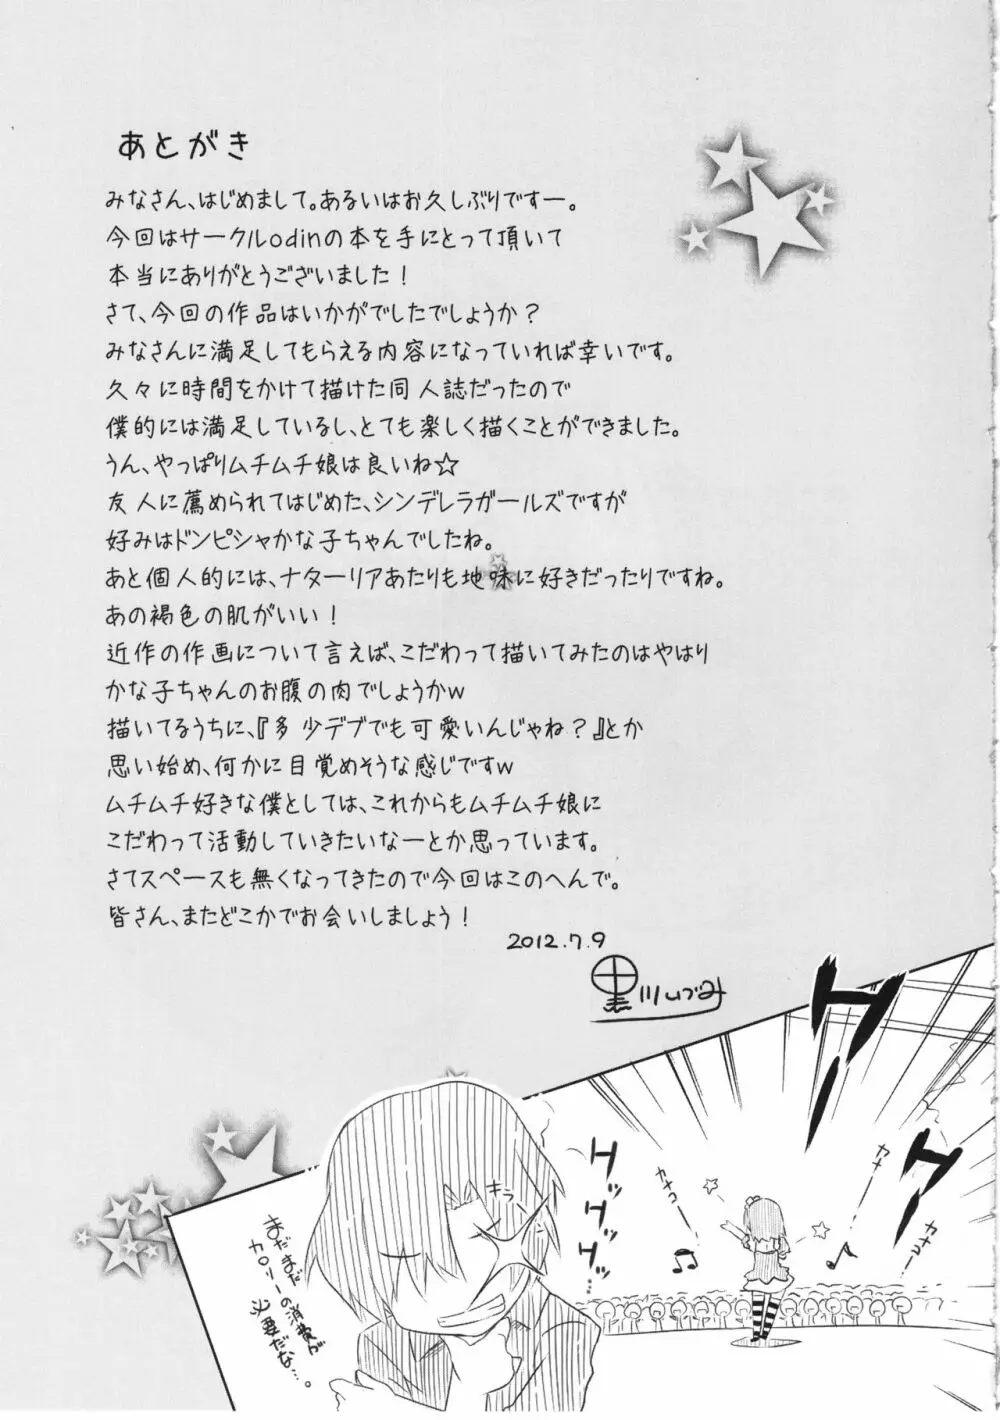 あとがき
みなさん、はじめまして。あるいはお久しぶりですー。
今回はサークルodinの本を手にとって頂いて
本当にありがとうございました！
さて、今回の作品はいかがでしたでしょうか？
みなさんに満足してもらえる内容になっていれば幸いです。
久々に時間をかけて描けた同人誌だったので
僕的には満足しているし、とても楽しく描くことができました。
うん、やっぱりムチムチ娘は良いね☆
友人に薦められてはじめた、シンデレラガールズですが
好みはドンピシャかな子ちゃんでしたね。
あと個人的には、ナターリアあたりも地味に好きだったりですね。
あの褐色の肌がいい！
近作の作画について言えば、こだわって描いてみたのはやはり
かな子ちゃんのお腹の肉でしょうかw
描いてるうちに、『多少デブでも可愛いんじゃね？』とか
思い始め、何かに目覚めそうな感じですw
ムチムチ好きな僕としては、これからもムチムチ娘に
こだわって活動していきたいなーとか思っています。
さてスペースも無くなってきたので今回はこのへんで。
皆さん、またどこかでお会いしましょう！
2012.7.9
黒川いづみ
ワー
ワー
ワーワー
カナコー
カナー
カナコー
キラッ
まだまだ
カロリーの消費が
必要だな…。